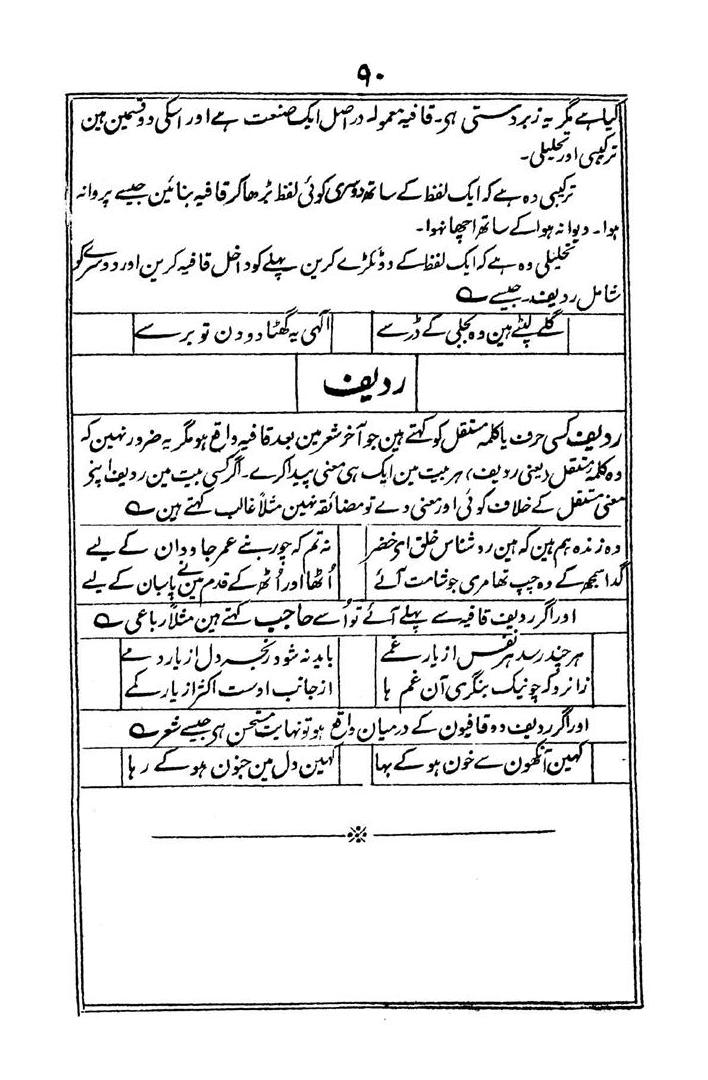 ۹۰
کیا ہے مگر یہ زبردستی ہی۔ قافیہ معمولہ دراصل ایک صنعت ہے اور اسکی دو قسمین ہین
ترکیبی اور تحلیلی۔
ترکیبی وہ ہے کہ ایک لفظ کے ساتھ دوسری کوئی لفظ بڑھا کر قافیہ بنائین جیسے پروانہ
ہوا۔ دیوانہ ہوا کے ساتھ اچھا نہوا۔
تحلیلی وہ ہے کہ ایک لفظ کے دو ٹکڑے کرین پہلے کو داخل قافیہ کرین اور دوسرے کو
شامل ردیف۔ جیسے ؎
گلے لپٹے ہین وہ بجلی کے ڈر سے الٰہی یہ گھٹا دو دن تو برسے
ردیف
ردیف کسی حرف یا کلمہ مستقل کو کہتے ہین جو آخر شعر مین بعد قافیہ واقع ہو مگر یہ ضرور نہین کہ
وہ کلمہ مستقل (یعنی ردیف) ہر بیت مین ایک ہی معنی پیدا کرے۔ اگر کسی بیت مین ردیف اپنے
معنی مستقل کے خلاف کوئی اور معنی دے تو مضائقہ نہین مثلاً غالب کہتے ہین ؎
وہ زندہ ہم ہین کہ ہین روشناس خلق ای خضر نہ تم کہ چور بنے عمر جاودان کے لیے
گدا سمجھ کے وہ چپ تھا مری جو شامت آئے اُٹھا اور اُٹھ کے قدم مین نے پاسبان کے لیے
اور اگر ردیف قافیہ سے پہلے آئے تو اُسے حاجب کہتے ہین مثلاً رباعی ؎
ہر چند رسد ہر نفس از یار غمے باید نہ شود رنجہ دل از یار دمے
زانرو کہ چو نیک بنگری آن غم ہا از جانب اوست اکثر از یار کمے
اور اگر ردیف دو قافیون کے درمیان واقع ہو تو نہایت مستحسن ہی جیسے شعر ؎
کہین آنکھون سے خون ہو کے بہا کہین دل مین جنون ہو کے رہا